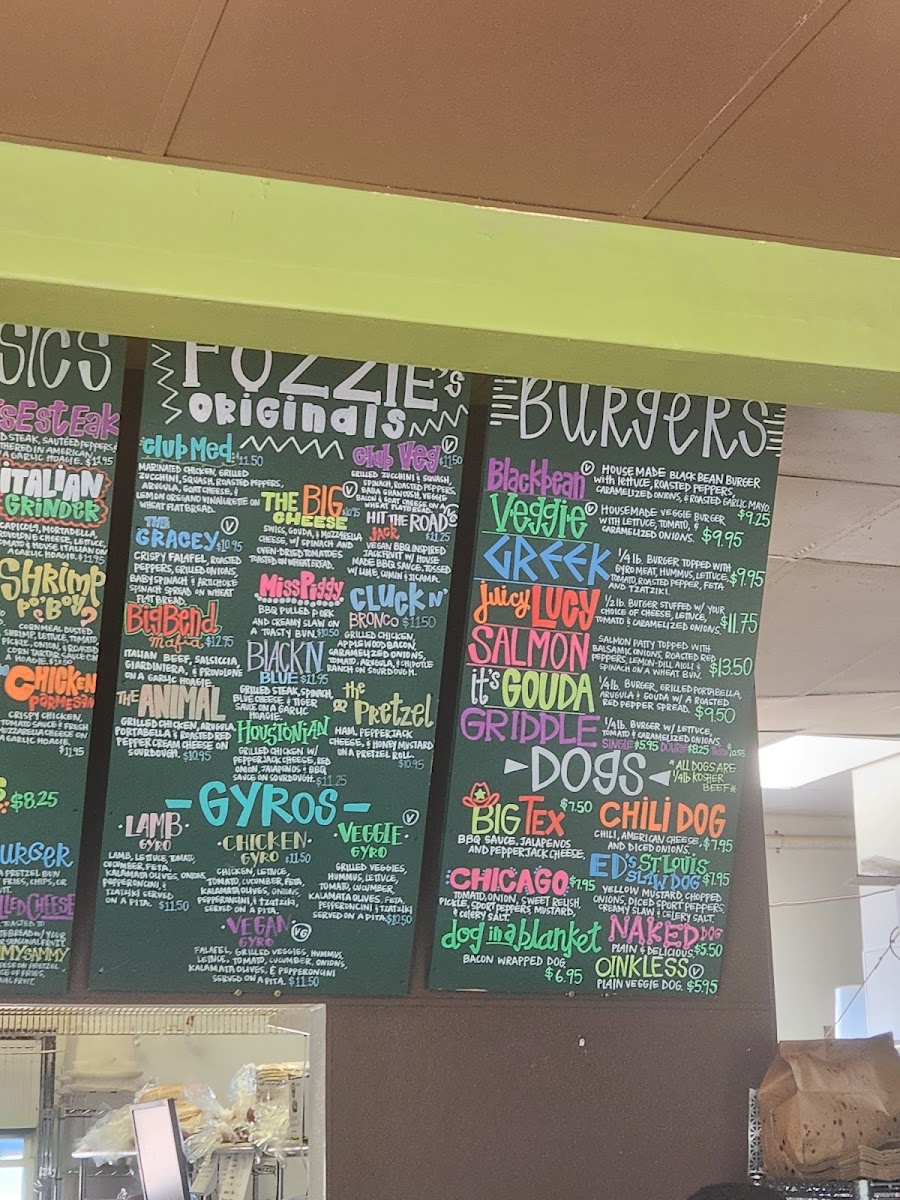 SICS
SESTEAK
D STEAK, SAUTÉED PEPPERS,
THERED IN AMERICAN,
A GARLIC HOAGIE. $11.95
ITALIAN
GRINDER
CAPICOLA, MORTADELLA,
PROVOLONE CHEESE, LETTUCE,
A GARLIC HOAGIE. $11.95
SHRIMP
PO'BOY
CORNMEAL DUSTED
SHRIMP, LETTUCE, TOMATO
PICKLE, ONION, & ROASTED
CORN TARTAR SAUCE ON
A HOAGIE.
CHICKEN
PARMESAN
CRISPY CHICKEN,
TOMATO SAUCE & FRESH
MOZZARELLA CHEESE ON
A GARLIC HOAGIE.
$11.95
$8.25
URGER
A PRETZEL BUN
FRIES, CHIPS, OR
LLED CHEESE
TOASTED TO
MY SAMMY
FOZZIE's
ORiginals
Club Med $11.50
MARINATED CHICKEN, GRILLED
ZUCCHINI, SQUASH, ROASTED PEPPERS,
ARUGULA, GOAT CHEESE, &
LEMON OREGANO VINAIGRETTE ON
WHEAT FLATBREAD.
Club Veg V $11.50
GRILLED ZUCCHINI & SQUASH,
SPINACH, ROASTED PEPPERS,
BABA GHANOUSH, VEGGIE
BACON & GOAT CHEESE ON A
WHEAT FLATBREAD.
THE BIG V
CHEESE $10.95
SWISS, GOUDA, & MOZZARELLA
CHEESE, W/ SPINACH AND
OVEN-DRIED TOMATOES
TOASTED ON WHEATBREAD.
HIT THE ROAD VG
JACK $11.25
VEGAN BBQ INSPIRED
JACKFRUIT W/ HOUSE
MADE BBQ SAUCE, TOSSED
W/ LIME, CUMIN & JICAMA.
THE V
GRACEY $10.95
CRISPY FALAFEL, ROASTED
PEPPERS, GRILLED ONIONS,
BABY SPINACH & ARTICHOKE
SPINACH SPREAD ON WHEAT
FLAT BREAD.
Miss Piggy
BBQ PULLED PORK
AND CREAMY SLAW ON
A TOASTY BUN. $10.50
CLUCK N'
BRONCO $11.50
GRILLED CHICKEN,
APPLEWOOD BACON,
CARAMELIZED ONIONS,
TOMATO, ARUGULA, & CHIPOTLE
RANCH ON SOURDOUGH.
Big Bend
Mafia $12.95
ITALIAN BEEF, SALSICCIA,
GIARDINIERA, & PROVOLONE
ON A GARLIC HOAGIE.
BLACK N
BLUE $11.95
GRILLED STEAK, SPINACH,
BLUE CHEESE & TIGER
SAUCE ON A GARLIC
HOAGIE.
THE ANIMAL
GRILLED CHICKEN, ARUGULA,
PORTABELLA & ROASTED RED
PEPPER CREAM CHEESE ON
SOURDOUGH. $10.95
Houstonian
GRILLED CHICKEN W/
PEPPERJACK CHEESE, RED
ONION, JALAPENOS & BBQ
SAUCE ON SOURDOUGH. $11.25
the Pretzel
HAM, PEPPERJACK
CHEESE, & HONEY MUSTARD
ON A PRETZEL ROLL.
$10.95
GYROS
LAMB
GYRO
LAMB, LETTUCE, TOMATO,
CUCUMBER, FETA,
KALAMATA OLIVES, ONIONS,
PEPPERONCINI, &
TZATZIKI SERVED
ON A PITA. $11.50
CHICKEN
GYRO $11.50
CHICKEN, LETTUCE,
TOMATO, CUCUMBER, FETA,
KALAMATA OLIVES, ONIONS,
PEPPERONCINI, & TZATZIKI
SERVED ON A PITA.
VEGGIE V
GYRO
GRILLED VEGGIES,
HUMMUS, LETTUCE,
TOMATO, CUCUMBER,
KALAMATA OLIVES, FETA,
PEPPERONCINI & TZATZIKI
SERVED ON A PITA. $10.50
VEGAN
GYRO VG
FALAFEL, GRILLED VEGGIES, HUMMUS,
LETTUCE, TOMATO, CUCUMBER, ONIONS,
KALAMATA OLIVES, & PEPPERONCINI
SERVED ON A PITA. $11.50
BURGERS
Blackbean V
HOUSE MADE BLACK BEAN BURGER
with LETTUCE, ROASTED PEPPERS,
CARAMELIZED ONIONS, & ROASTED GARLIC MAYO
$9.25
Veggie V
HOUSEMADE VEGGIE BURGER
WITH LETTUCE, TOMATO, &
CARAMELIZED ONIONS. $9.95
GREEK
1/4 lb. BURGER TOPPED WITH
GYRO MEAT, HUMMUS, LETTUCE,
TOMATO, ROASTED PEPPER, FETA
AND TZATZIKI. $9.95
juicy LUCY
1/2 lb. BURGER STUFFED W/ YOUR
CHOICE OF CHEESE, LETTUCE,
TOMATO & CARAMELIZED ONIONS. $11.75
SALMON
SALMON PATTY TOPPED WITH
BALSAMIC ONIONS, ROASTED RED
PEPPERS, LEMON-DILL AIOLI &
SPINACH ON A WHEAT BUN. $13.50
it's GOUDA
1/4 lb. BURGER, GRILLED PORTABELLA,
ARUGULA & GOUDA W/ A ROASTED
RED PEPPER SPREAD. $9.50
GRIDDLE
1/4 lb. BURGER W/ LETTUCE,
TOMATO & CARAMELIZED ONIONS
SINGLE $5.95 DOUBLE $8.25 $10.55
DOGS
*ALL DOGS ARE
1/4 lb KOSHER
BEEF*
BIG TEX $7.50
BBQ SAUCE, JALAPENOS
AND PEPPERJACK CHEESE.
CHILI DOG
CHILI, AMERICAN CHEESE,
AND DICED ONIONS. $7.95
CHICAGO $7.95
TOMATO, ONION, SWEET RELISH,
PICKLE, SPORT PEPPERS, MUSTARD,
& CELERY SALT.
ED'S ST. LOUIS
SLAW DOG $7.95
YELLOW MUSTARD, CHOPPED
ONIONS, DICED SPORT PEPPERS,
CREAMY SLAW & CELERY SALT.
dog in a blanket
BACON WRAPPED DOG
$6.95
NAKED DOG
PLAIN & DELICIOUS $5.50
OINKLESS V
PLAIN VEGGIE DOG. $5.95